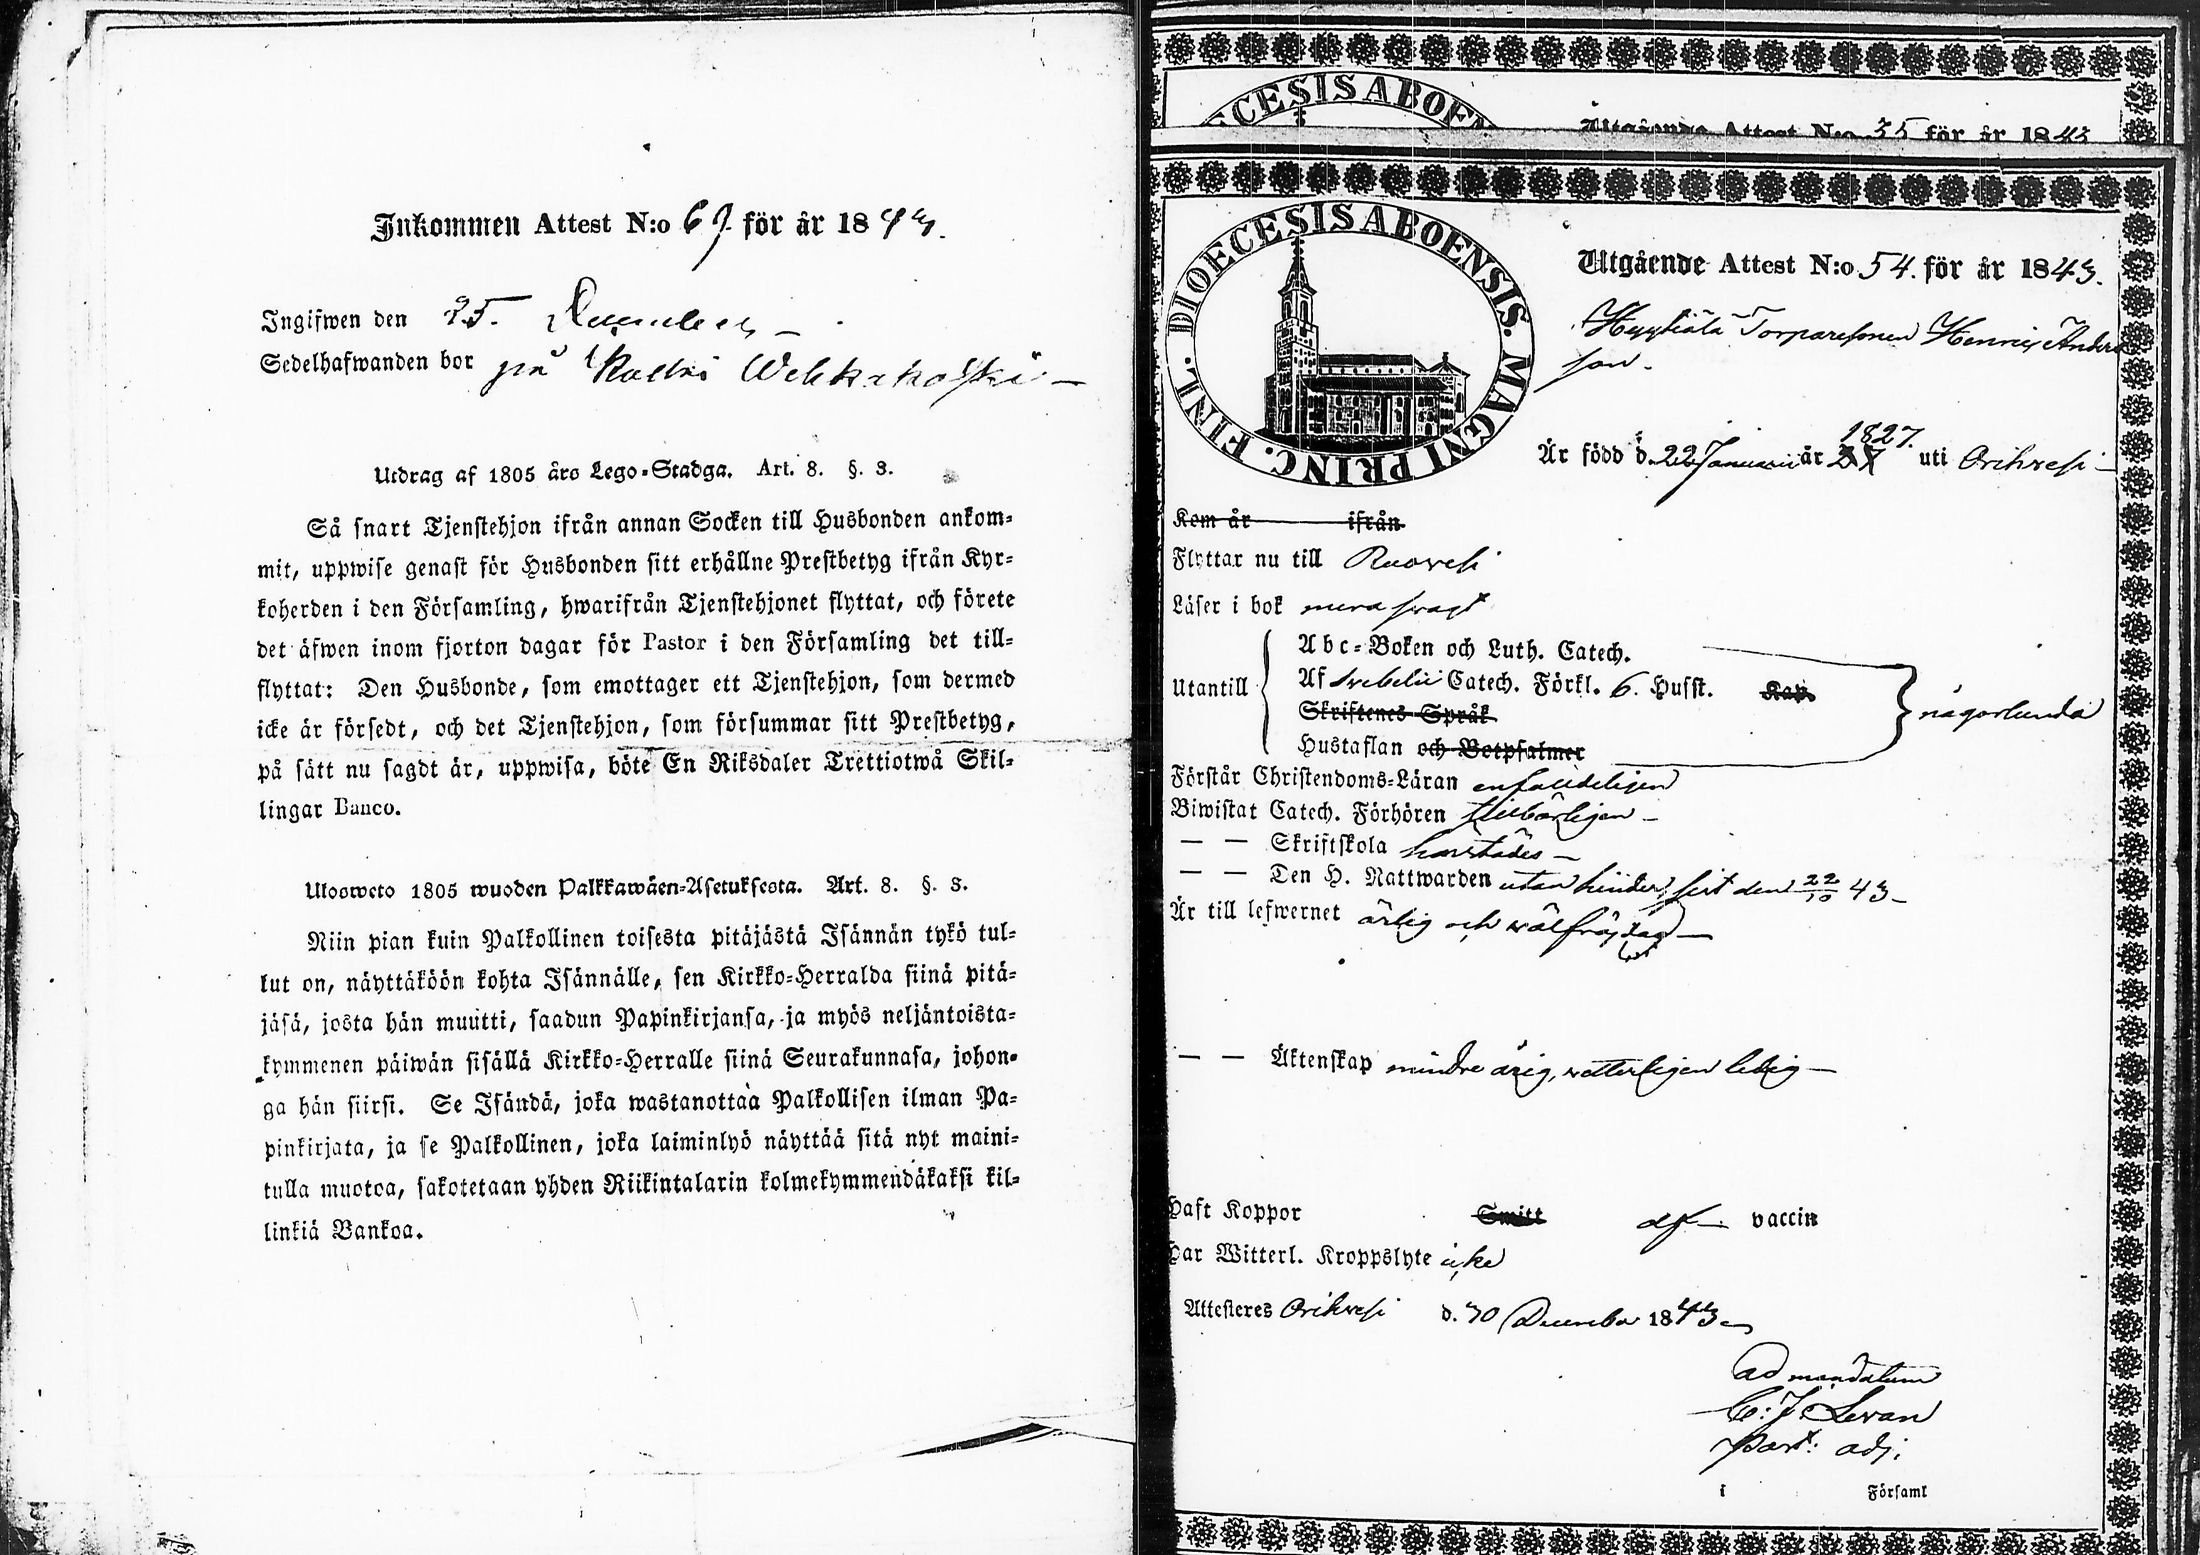 Inkommen Attest N:o 67. för år 1843.
Ingifwen den 25. December –
Sedelhafwanden bor på
Utdrag af 1805 års Lego-Stadga. Art. 8. §. 3.
Så snart Tjenstehjon ifrån annan Socken till Husbonden ankom-
mit, uppwise genast för Husbonden sitt erhållne Prestbetyg ifrån Kyr-
koherden i den Församling, hwarifrån Tjenstehjonet flyttat, och förete
det äfwen inom fjorton dagar för Pastor i den Församling det till-
flyttat: Den Husbonde, som emottager ett Tjenstehjon, som dermed
icke är försedt, och det Tjenstehjon, som försummar sitt Prestbetyg,
på sätt nu sagdt är, uppwisa, böte En Riksdaler Trettiotwå Skil-
lingar Banco.
Ulosweto 1805 wuoden Palkkawäen-Asetuksesta. Art. 8. §. 3.
Niin pian kuin Palkollinen toisesta pitäjästä Isännän tykö tul-
lut on, näyttäköön kohta Isännälle, sen Kirkko-Herralda siinä pitä-
jäsä, josta hän muutti, saadun Papinkirjansa, ja myös neljäntoista-
kymmenen päiwän sisällä Kirkko-Herralle siinä Seurakunnasa, johon-
ga hän siirsi. Se Isändä, joka wastanottaa Palkollisen ilman Pa-
pinkirjata, ja se Palkollinen, joka laiminlyö näyttää sitä nyt maini-
tulla muotoa, sakotetaan yhden Riikintalarin kolmekymmendäkaksi kil-
linkiä Bankoa.
DIOECESIS ABOEN
Utgående Attest N:o 35 för år 1843
DIOECESIS ABOENSIS. MAGNI PRINC. FINL.
Utgående Attest N:o 54. för år 1843.
Torparesonen Henric Anders
son.
1827.
Är född d. 22 Januarii år 27 uti Orihvesi –
Kom år ifrån
Flyttar nu till Ruovesi
Läser i bok mera svagt
Abc-Boken och Luth. Catech.
Utantill Af Svebelii Catech. Förkl. 6. Husst. Kap.
Skriftenes Språk
någorlunda
Hustaflan och Botpsalmer
Förstår Christendoms-Läran enfaldeligen
Biwistat Catech. Förhören skickligen –
– – Skriftskola härstädes –
– – Den H. Nattwarden utan hinder, sist den 22/10 43 –
Är till lefwernet ärlig och välfräjdad –
– – Äktenskap minderårig, vetterligen ledig –
Haft Koppor Smitt df – vaccin
Har Witterl. Kroppslyte icke
Attesteres Orihvesi d. 30 December 1843
ad mandatum
C: J: Levan
Past: adj:
i Församl